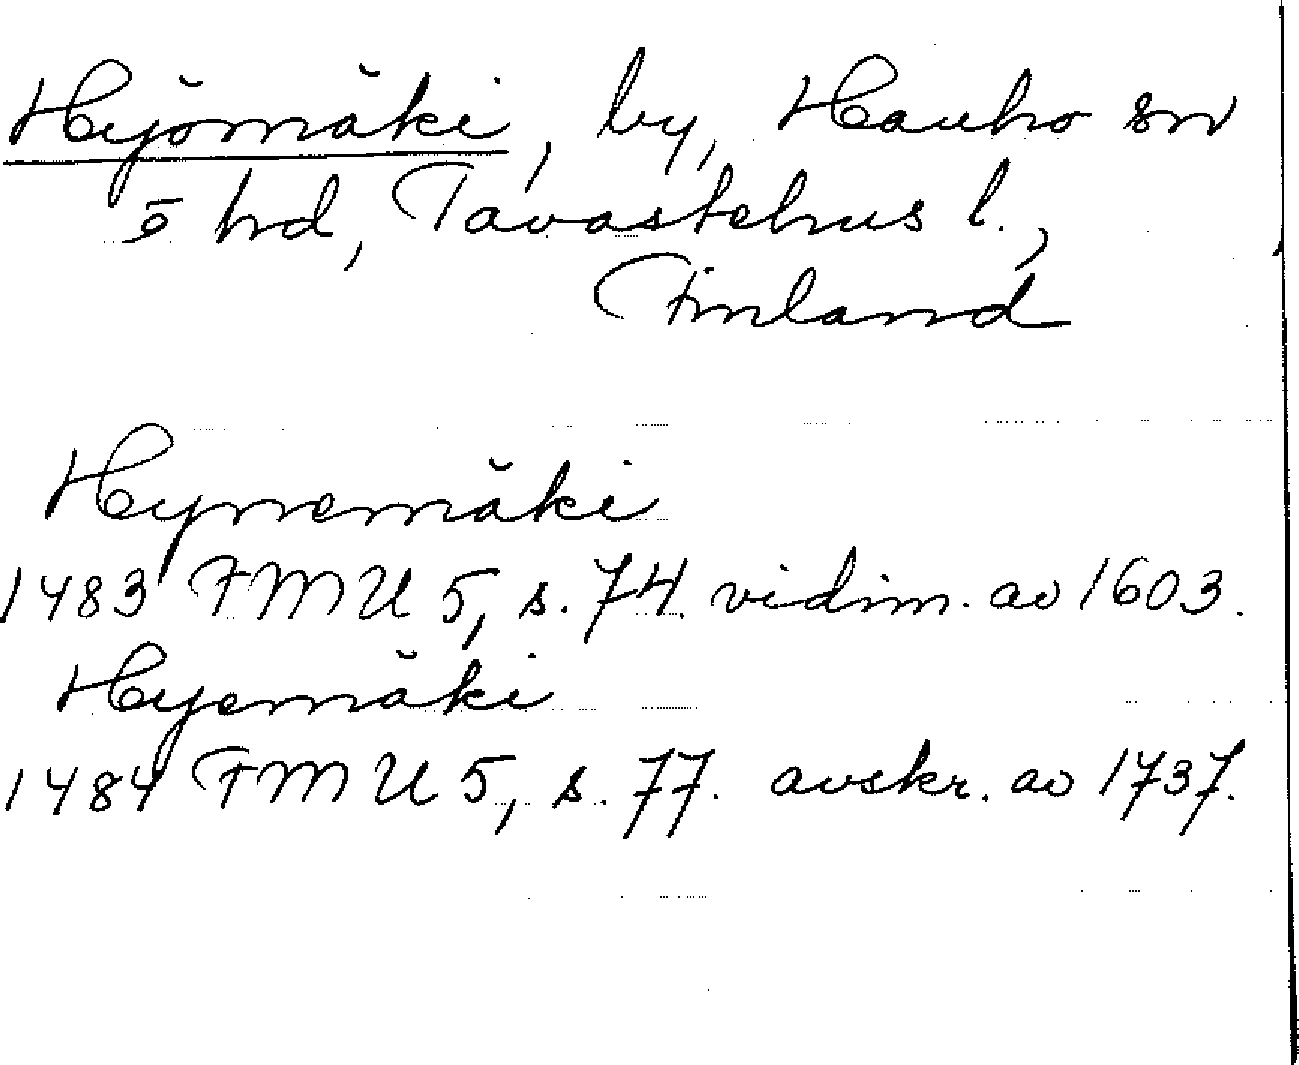 Hyömäki, by, Hauho sn
o hd, Tavastehus l.,
Finland
Hynemäki
1483 FMU 5, s. 74. vidim. av 1603.
Hyemäki
1484 FMU 5, s. 77. avskr. av 1737.